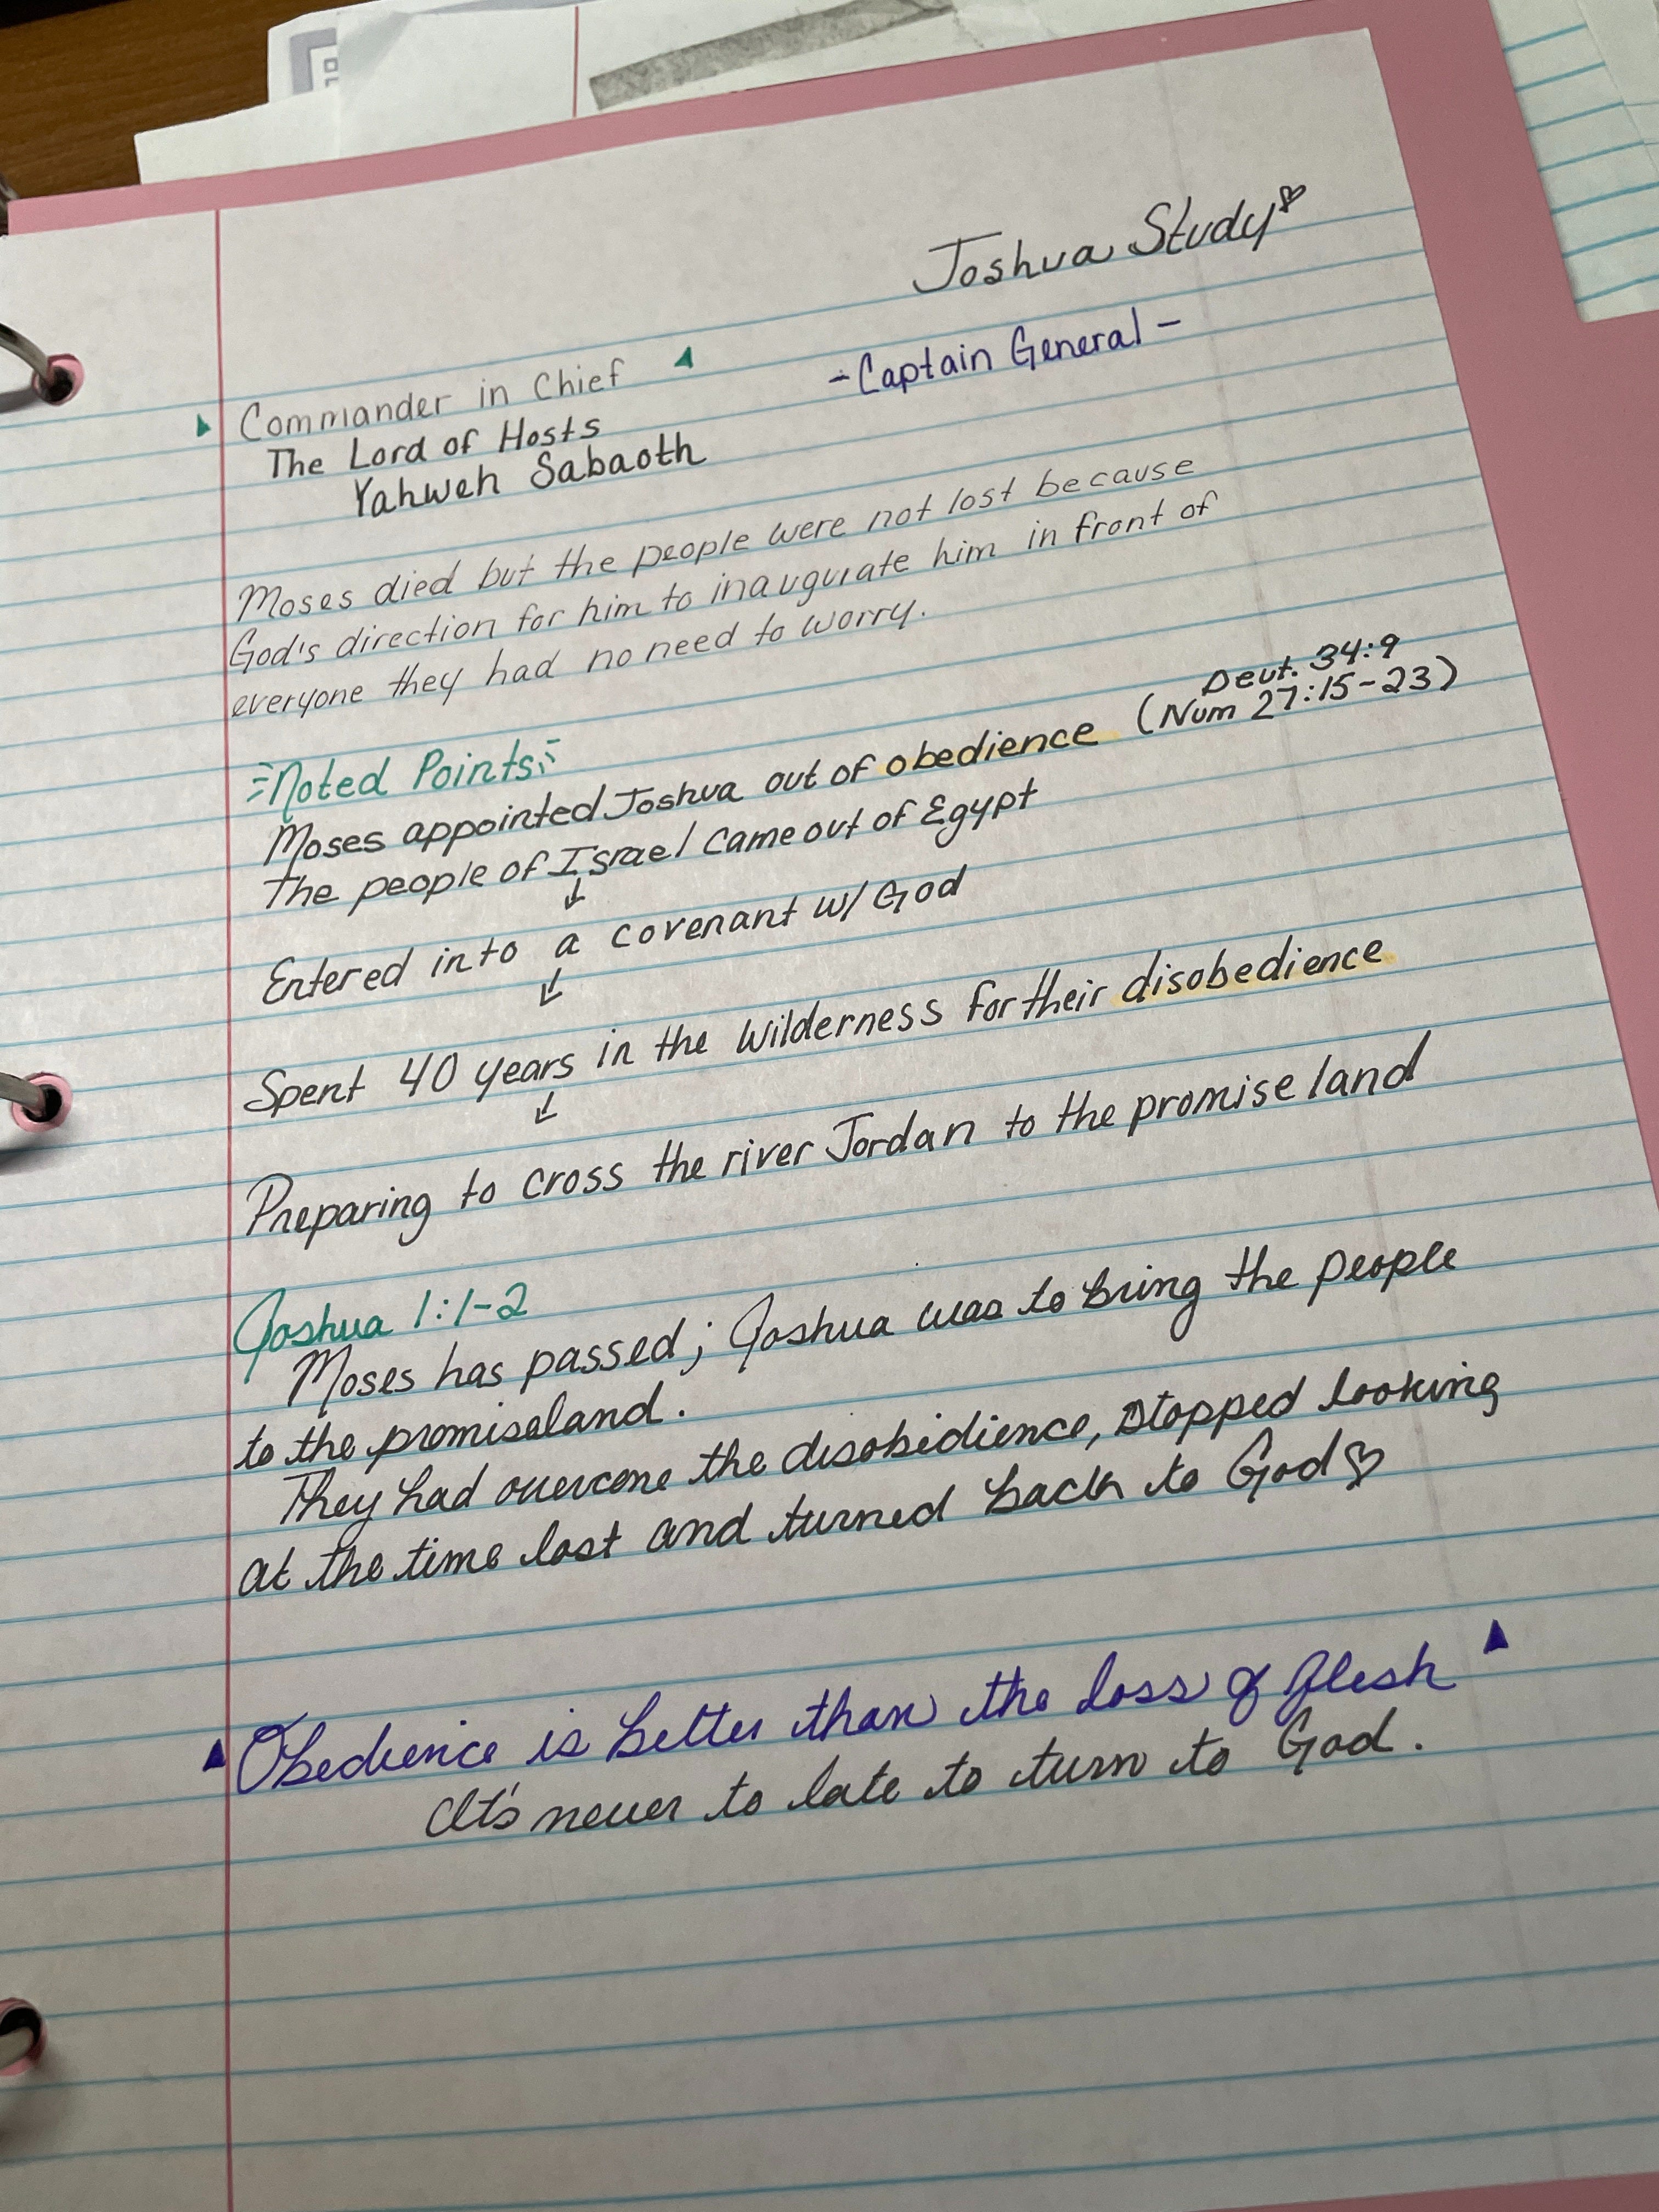 Joshua Study
-Captain General-
Commander in Chief
The Lord of Hosts
Yahweh Sabaoth
Moses died but the people were not lost because
God's direction for him to inaugurate him in front of
everyone they had no need to worry.
Noted Points
Deut. 34:9
Moses appointed Joshua out of obedience (Num 27:15-23)
The people of Israel came out of Egypt
↓
Entered into a covenant w/ God
↓
Spent 40 years in the wilderness for their disobedience
↓
Preparing to cross the river Jordan to the promise land
Joshua 1:1-2
Moses has passed; Joshua was to bring the people
to the promiseland.
They had overcome the disobidience, stopped looking
at the time lost and turned back to God♡
Obedience is better than the loss of flesh
It's never to late to turn to God.